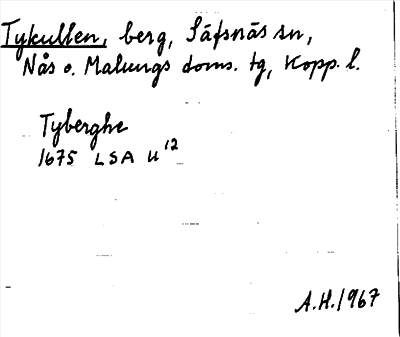 Tykullen, berg, Säfsnäs sn,
Nås o. Malungs doms. tg, Kopp. l.
Tyberghe
1675 LSA U12
A.H./967